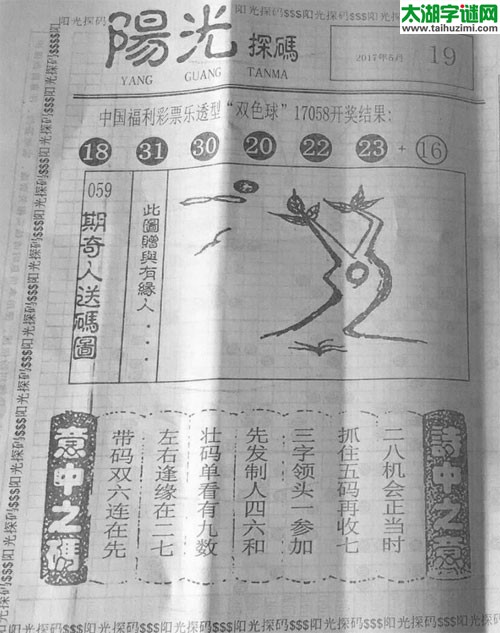 阳光探码$$$阳光探码$$$阳光探码$$$阳光
太湖字谜网
www.taihuzimi.com
陽光探碼
YANG GUANG TANMA
2017年5月
19
中国福利彩票乐透型“双色球”17058开奖结果:
18 31 30 20 22 23 + 16
059
期奇人送碼圖
此圖贈與有緣人....
詩中之意
二八机会正当时
抓住五码再收七
三字领头一参加
先发制人四六和
壮码单看有九数
左右逢缘在二七
带码双六连在先
意中之碼
阳光探码$$$阳光探码$$$阳光探码$$$阳光探码$$$阳光探码$$$阳光探码$$$
阳光探码$$$阳光探码$$$阳光探码$$$阳光探码$$$阳光探码